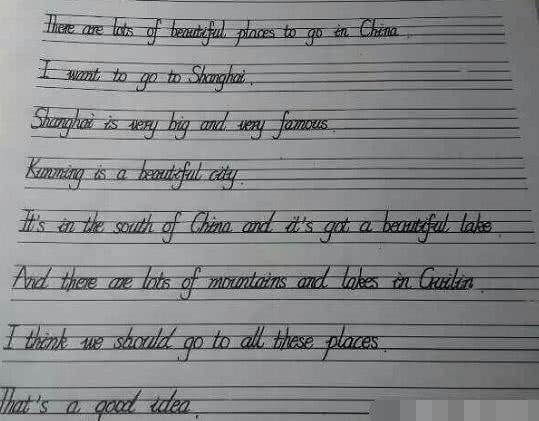 There are lots of beautiful places to go in China.
I want to go to Shanghai.
Shanghai is very big and very famous.
Kunming is a beautiful city.
It's in the south of China and it's got a beautiful lake.
And there are lots of mountains and lakes in Guilin.
I think we should go to all these places.
That's a good idea.